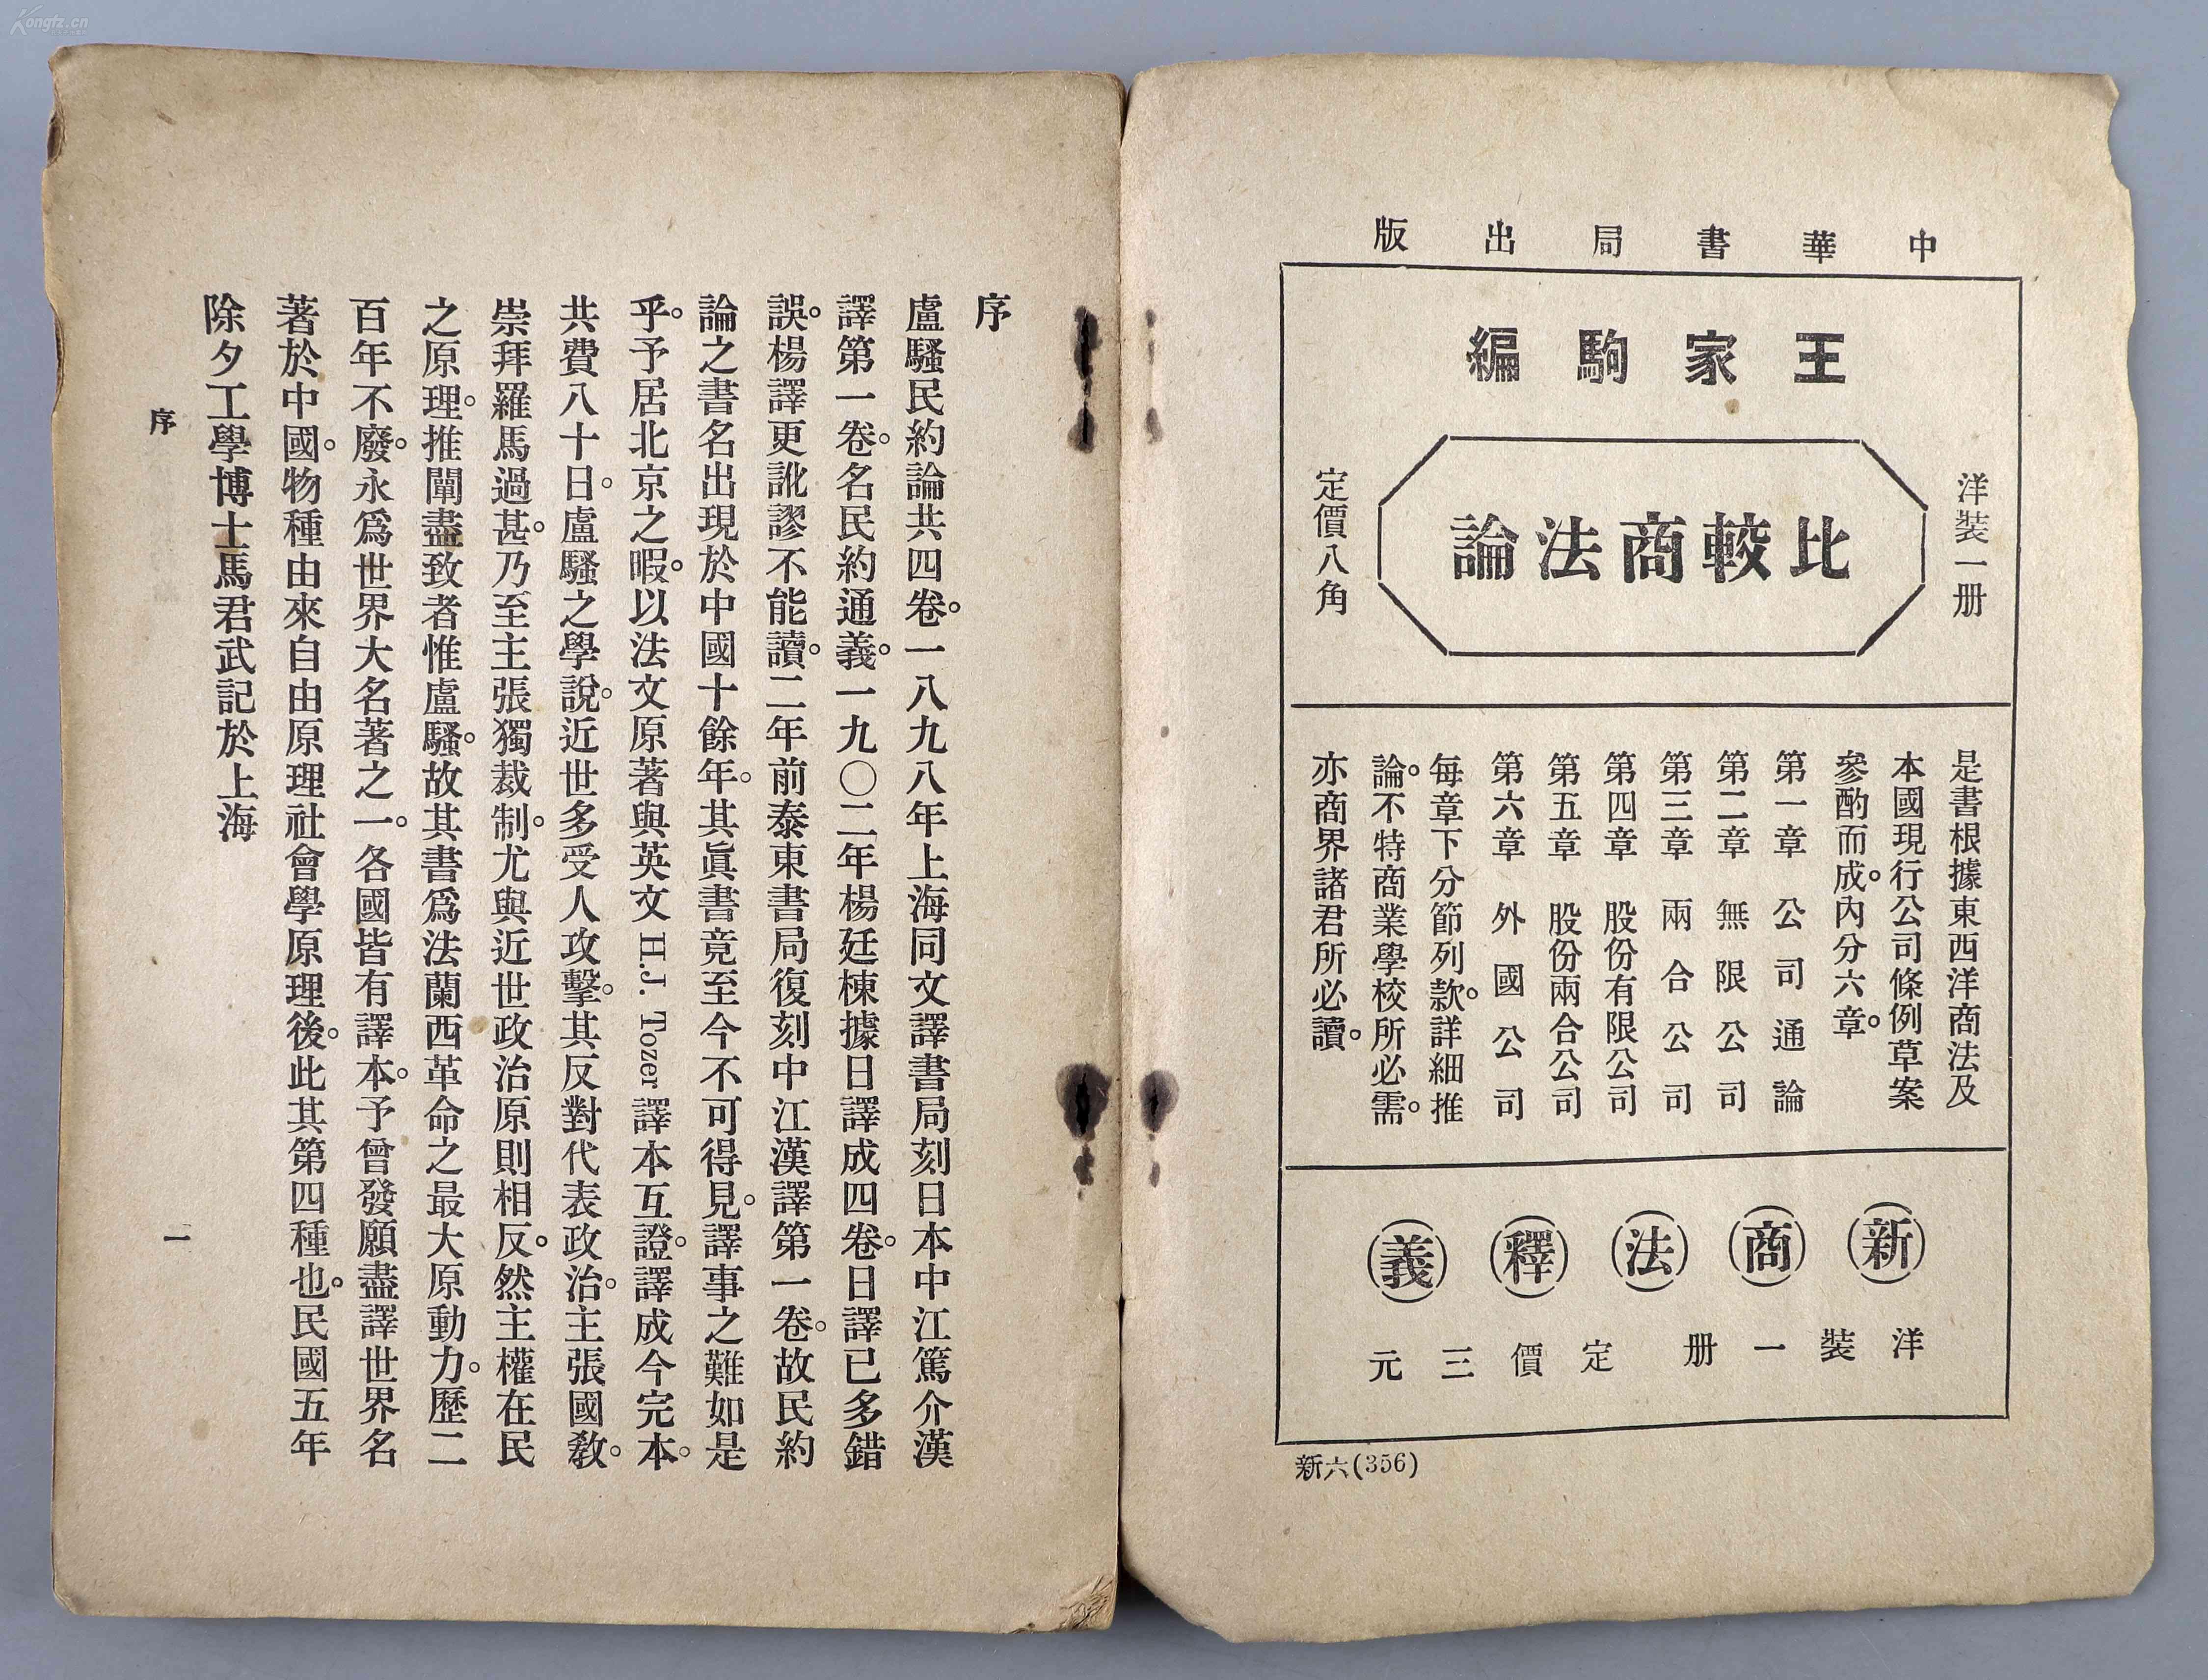 Kongfz.cn
中華書局出版
王家駒編
洋裝一册
比較商法論
定價八角
是書根據東西洋商法及
本國現行公司條例草案
參酌而成。內分六章。
第一章 公司通論
第二章 無限公司
第三章 兩合公司
第四章 股份有限公司
第五章 股份兩合公司
第六章 外國公司
每章下分節列款。詳細推
論。不特商業學校所必需。
亦商界諸君所必讀。
新商法釋義
洋裝一册 定價三元
新六(356)
序
盧騷民約論共四卷。一八九八年上海同文譯書局刻日本中江篤介漢
譯第一卷。名民約通義。一九〇二年楊廷棟據日譯成四卷。日譯已多錯
誤。楊譯更訛謬不能讀。二年前泰東書局復刻中江漢譯第一卷。故民約
論之書名出現於中國十餘年。其眞書竟至今不可得見。譯事之難如是
乎。予居北京之暇。以法文原著與英文 H.J. Tozer 譯本互證。譯成今完本。
共費八十日。盧騷之學說。近世多受人攻擊。其反對代表政治。主張國教。
崇拜羅馬過甚。乃至主張獨裁制。尤與近世政治原則相反。然主權在民
之原理。推闡盡致者惟盧騷。故其書爲法蘭西革命之最大原動力。歷二
百年不廢。永爲世界大名著之一。各國皆有譯本。予曾發願盡譯世界名
著於中國。物種由來自由原理社會學原理後。此其第四種也。民國五年
除夕工學博士馬君武記於上海
序
一